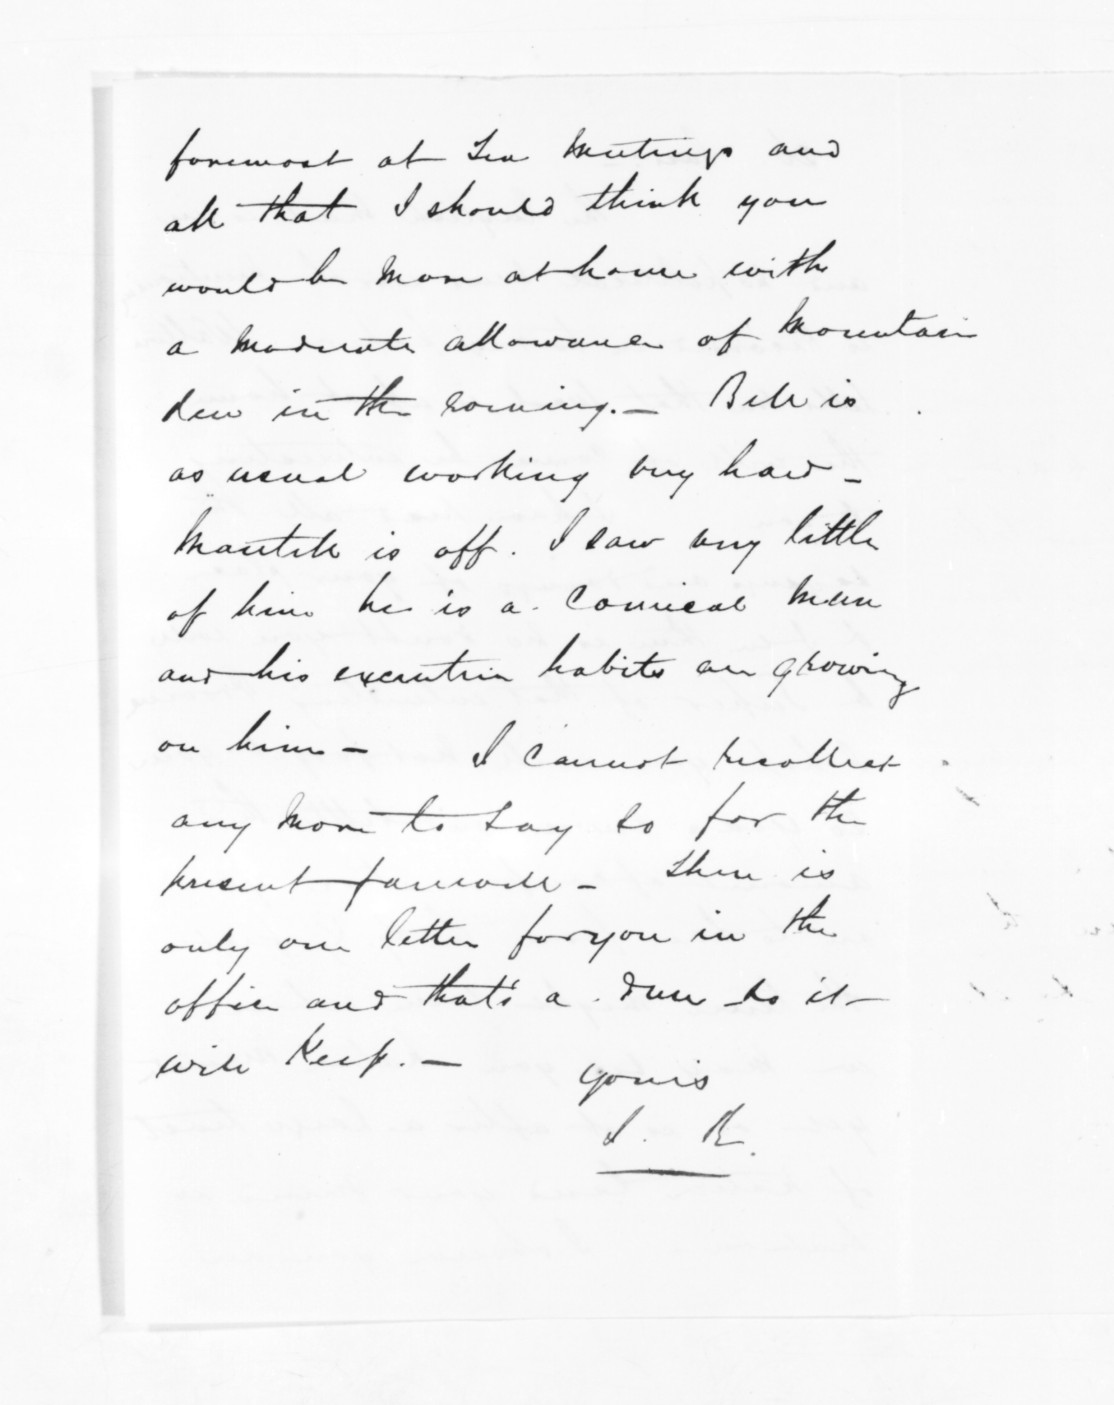 foremost at Tea Meetings and
all that I should think you
would be more at home with
a moderate allowance of Mountain
dew in the evening. — Bell is
as usual working very hard —
Mantell is off. I saw very little
of him he is a comical man
and his eccentric habits are growing
on him — I cannot recollect
any more to say so for the
present farewell — There is
only one letter for you in the
office and that's a dun so it
will keep. —
yours
J. R.